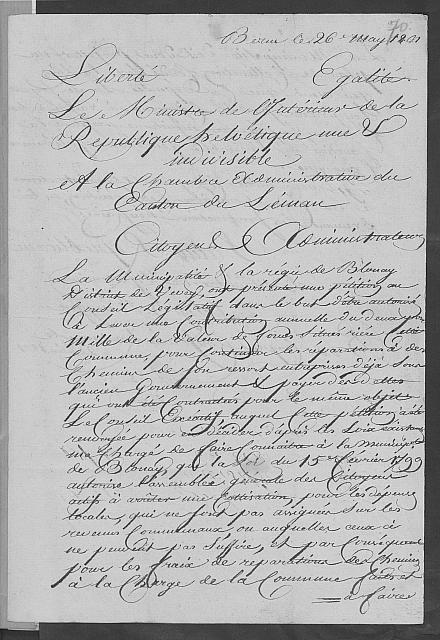 70
Berne le 26e May 1801
Liberté Egalité
Le Ministre de l'Intérieur de la
Republique helvétique une &
indivisible
A la Chambre Administrative du
Canton du Léman
Citoyens Administrateurs
La Municipalité & la régie de Blonay
District de Vevey, ont présenté une pétition au
Conseil Législatif dans le but d'être autorisé
à lever une Contribution annuelle du deux pour
Mille de la valeur de fonds situés rière Cette
Commune, pour Continuer les réparations à des
Chemins de son ressort entreprises déjà sous
l'ancien Gouvernement & payer des dettes
qui ont été Contractées pour le même objet
Le Conseil Executif auquel Cette pétition a été
renvoyée pour en décider d'après les Loix existantes
ma Chargé de faire Connaitre à la municipalité
de Blonay, que la Loi du 15e fevrier 1799
autorise l'assemblée générale des Citoyens
actifs à arrêter une Cottisation, pour les dépenses
locales, qui ne sont pas assignées sur les
revenus Communaux ou auxquelles ceux ci
ne peuvent pas suffire, et par Conséquent
pour les fraix de reparations des Chemins
à la Charge de la Commune faits et
à faire